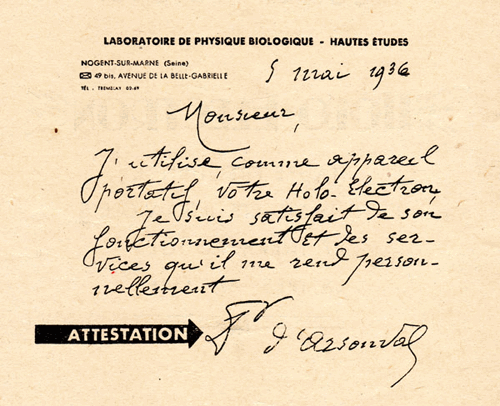 LABORATOIRE DE PHYSIQUE BIOLOGIQUE - HAUTES ÉTUDES
NOGENT-SUR-MARNE (Seine)
49 bis, AVENUE DE LA BELLE-GABRIELLE
TÉL. : TREMBLAY 02-69
5 mai 1936
Monsieur,
J'utilise, comme appareil
portatif, votre Holo-Electron,
Je suis satisfait de son
fonctionnement et des ser-
vices qu'il me rend person-
nellement
ATTESTATION
Dr d'Arsonval